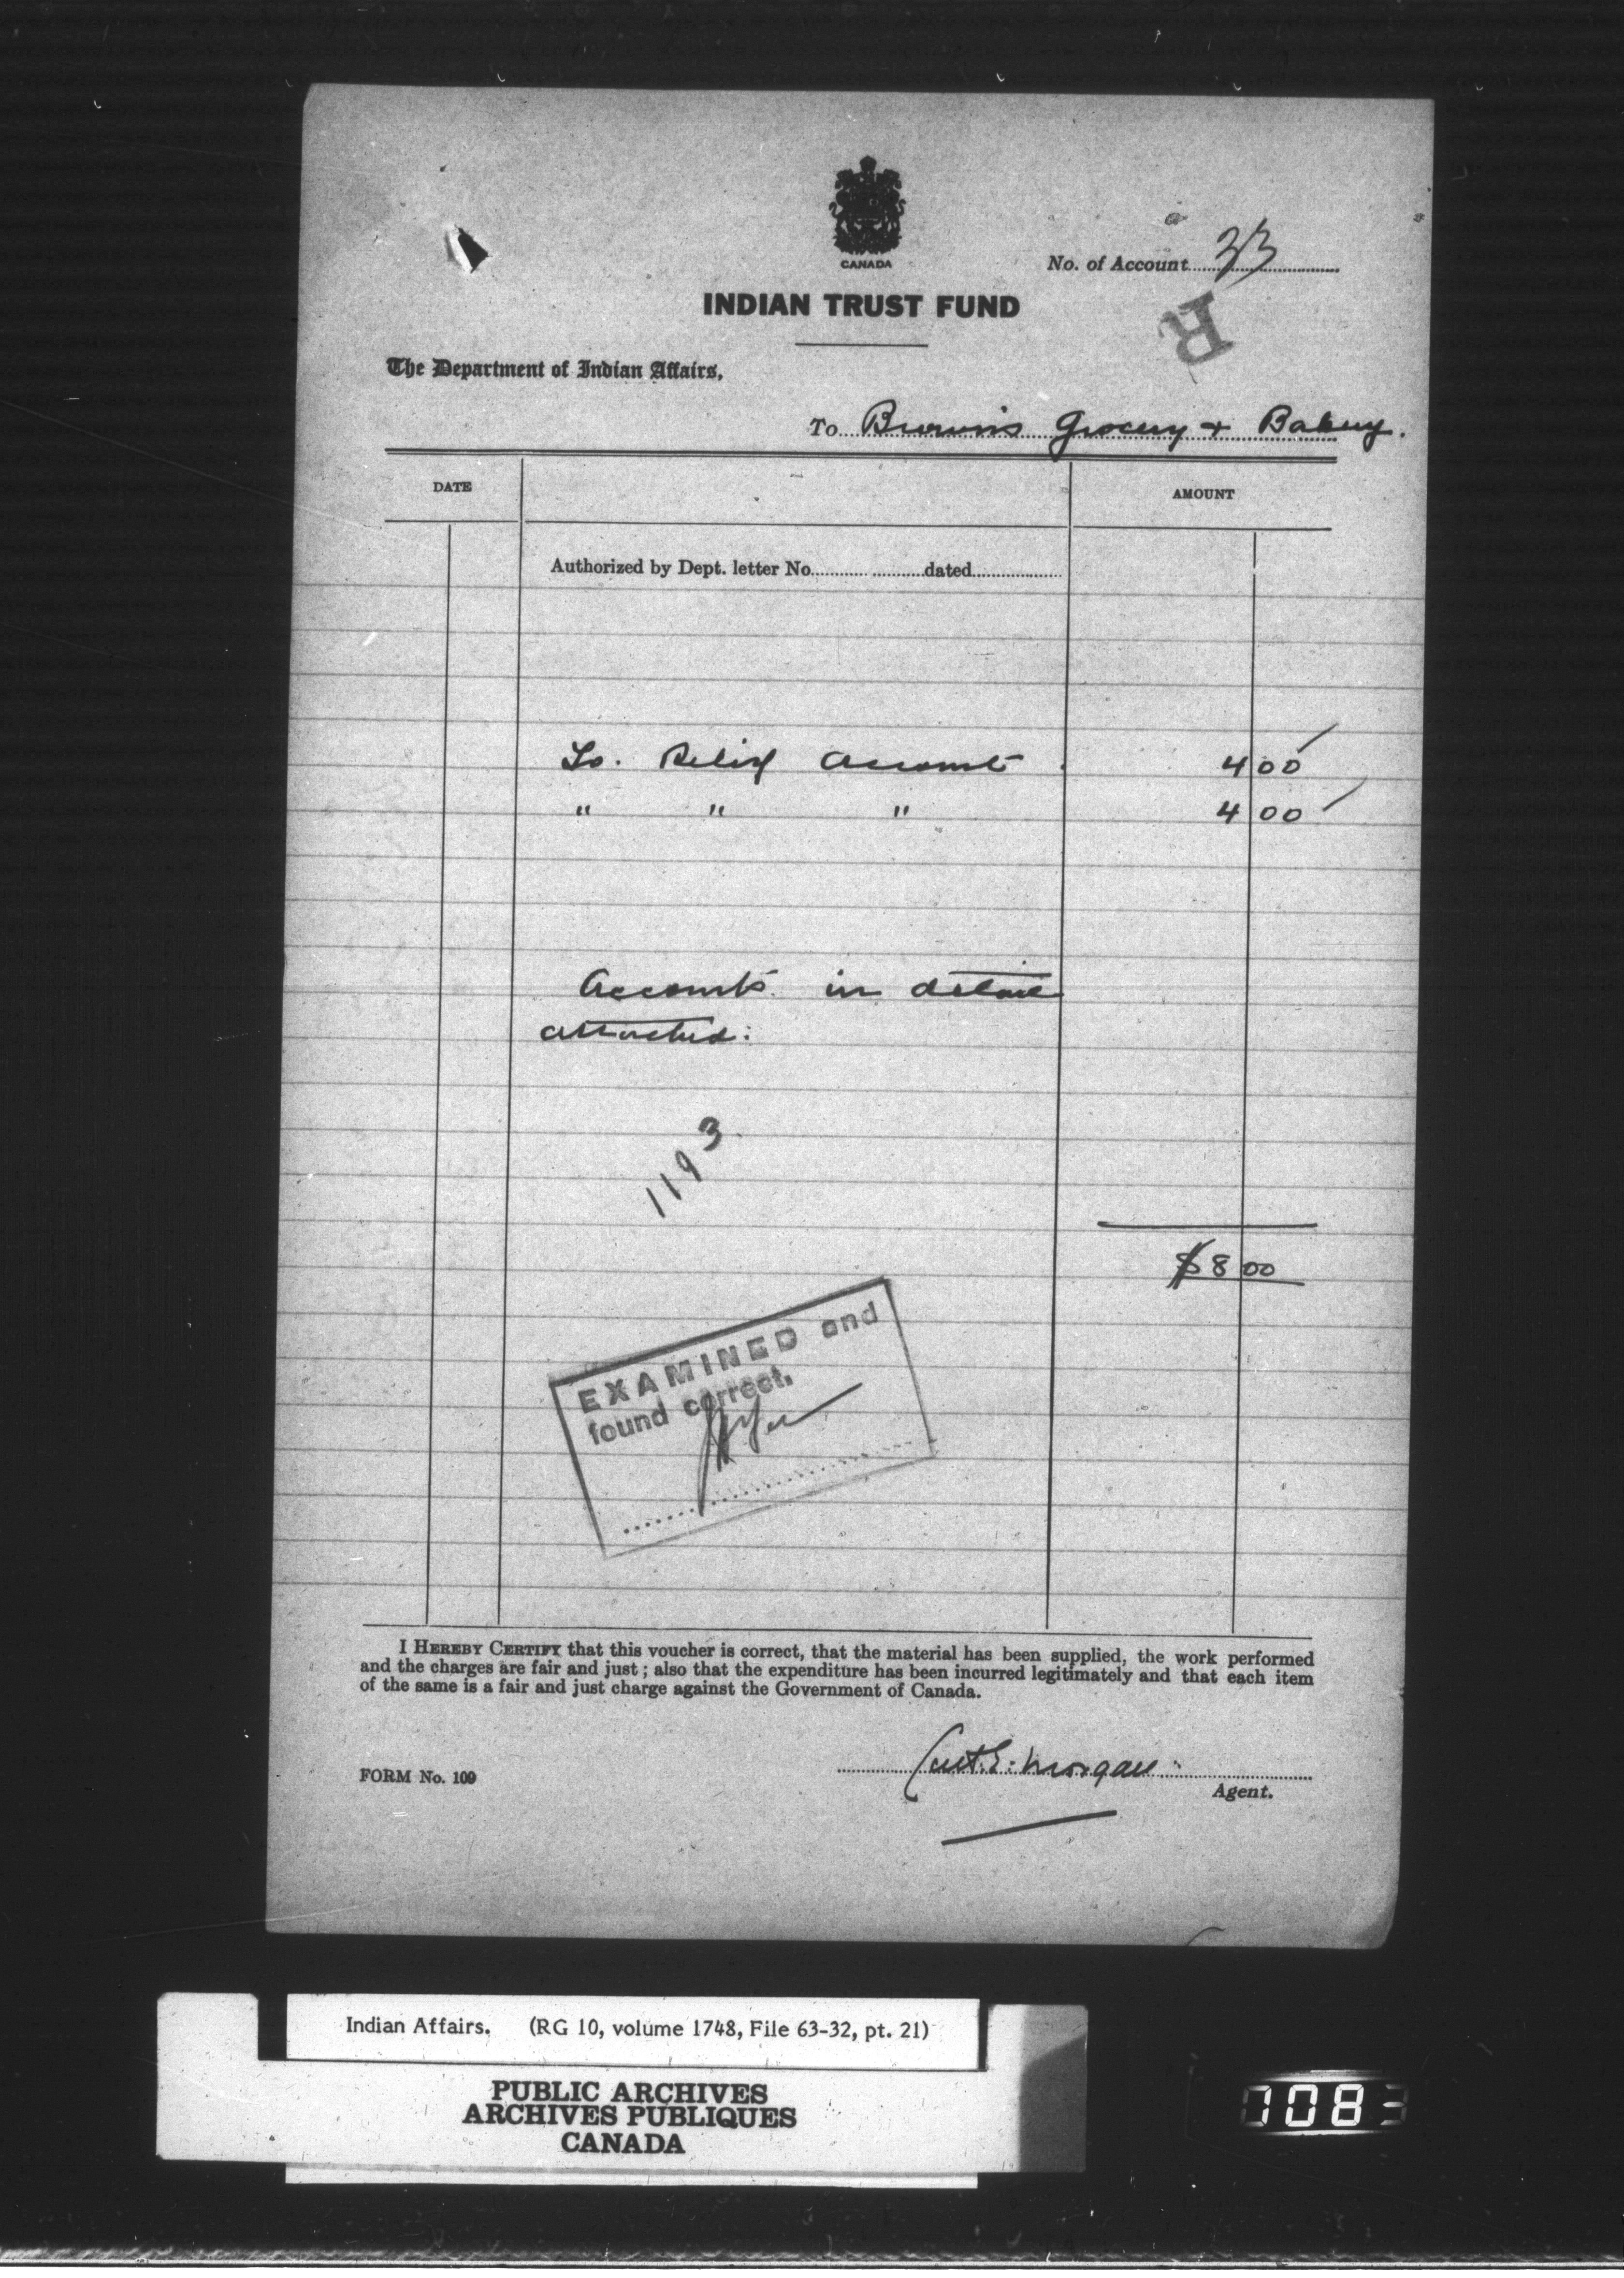 CANADA
No. of Account 33
INDIAN TRUST FUND
R
The Department of Indian Affairs,
To Brown's Grocery + Bakery.
DATE
AMOUNT
Authorized by Dept. letter No. dated
To. Relief Account 4 00
" " " 4 00
Accounts in detail
attached.
1193
$8 00
EXAMINED and
found correct.
I HEREBY CERTIFY that this voucher is correct, that the material has been supplied, the work performed
and the charges are fair and just; also that the expenditure has been incurred legitimately and that each item
of the same is a fair and just charge against the Government of Canada.
E. Morgan
FORM No. 109
Agent.
Indian Affairs. (RG 10, volume 1748, File 63-32, pt. 21)
PUBLIC ARCHIVES
ARCHIVES PUBLIQUES
CANADA
1083